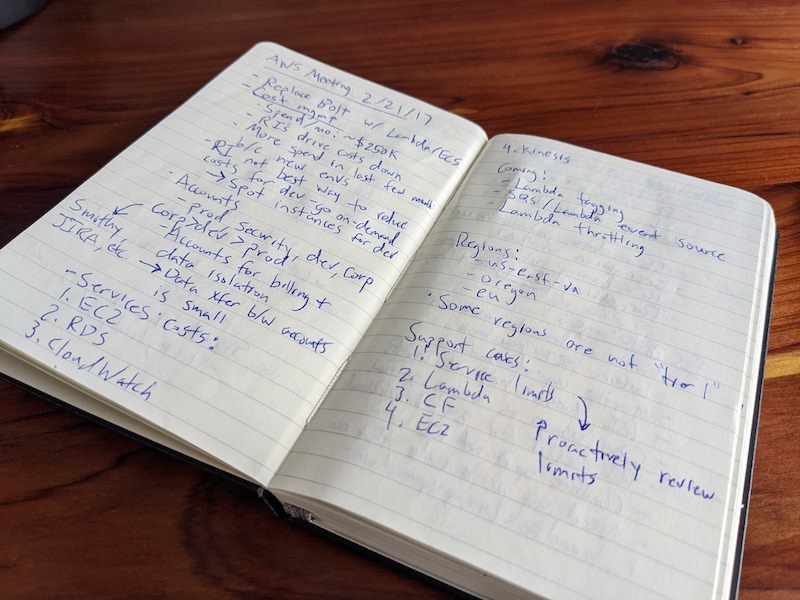 AWS Meeting 2/21/17
- Replace Bolt w/ Lambda/ECS
- Cost mgmt
- Spend/mo: ~$250K
- RI's drive costs down
- More spend in last few months
b/c new envs
- RI not best way to reduce
costs for dev - go on-demand
→ Spot instances for dev
- Accounts
- prod, security, dev, corp
Corp > dev > prod
Smithy
JIRA, etc.
- Accounts for billing +
data isolation
→ Data xfer b/w accounts
is small
- Services costs:
1. EC2
2. RDS
3. CloudWatch
4. Kinesis
Coming:
- Lambda tagging
- SQS/Lambda event source
- Lambda throttling
Regions:
- us-east-va
- oregon
- eu
· Some regions are not "tier 1"
Support cases:
1. Service limits
2. Lambda
3. CF
4. EC2
Proactively review
limits